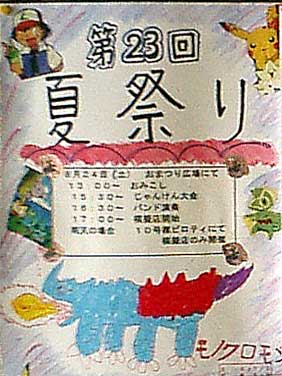 第23回
夏祭り
8月24日(土) おまつり広場にて
13:00〜 おみこし
15:30〜 じゃんけん大会
16:30〜 バンド演奏
17:00〜 模擬店開始
雨天の場合 10号棟ピロティにて
模擬店のみ開催
モノクロモン